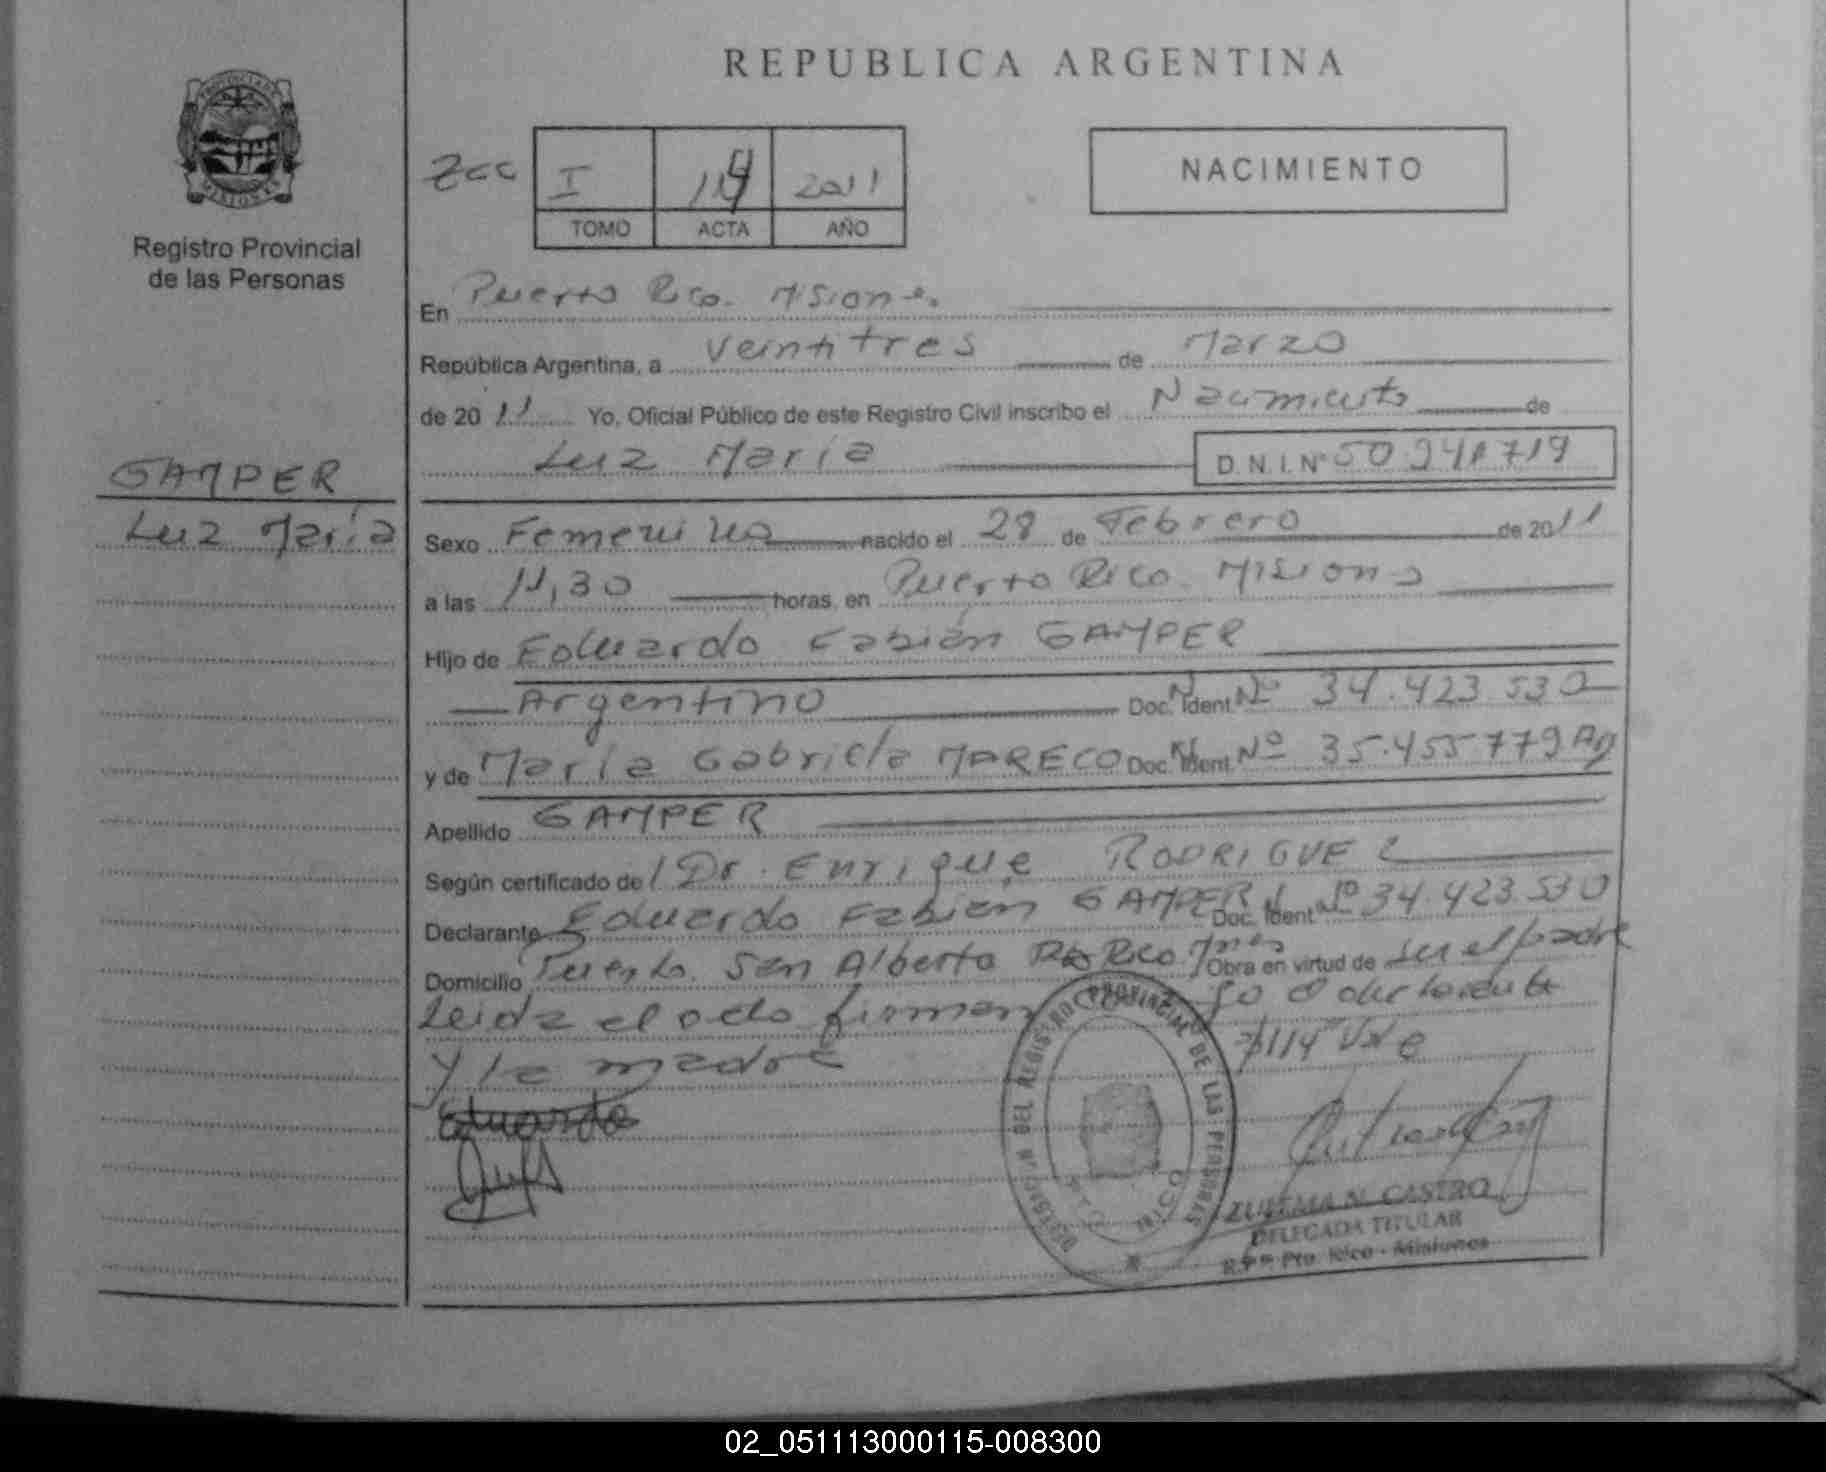 REPUBLICA ARGENTINA
PROVINCIA DE MISIONES
Registro Provincial
de las Personas
I 114 2011
TOMO ACTA AÑO
NACIMIENTO
En Puerto Rico. Misiones.
República Argentina, a veintitres de Marzo
de 2011 Yo, Oficial Público de este Registro Civil inscribo el Nacimiento de
Luz María D.N.I.Nº
GAMPER
Luz María
Sexo Femenino nacido el 28 de Febrero de 2011
a las 11,30 horas, en Puerto Rico. Misiones
Hijo de Eduardo Fabián GAMPER
Argentino Doc. Ident. Nº 34.423.530
y de María Gabriela MARECO Doc. Ident. Nº 35.455779 Arg
Apellido GAMPER
Según certificado de l Dr. Enrique RODRIGUEZ
Declarante Eduardo Fabián GAMPER Doc. Ident Nº 34.423.530
Domicilio Puerto San Alberto Pto Rico. Mnes Obra en virtud de ser el padre
Leida el acta firman el declarante
y la madre
114 Vale
Eduardo
DELEGACION DEL REGISTRO PROVINCIAL DE LAS PERSONAS
PTO. RICO
ZULEMA N. CASTRO
DELEGADA TITULAR
R.P.P. Pto. Rico - Misiones
02_051113000115-008300